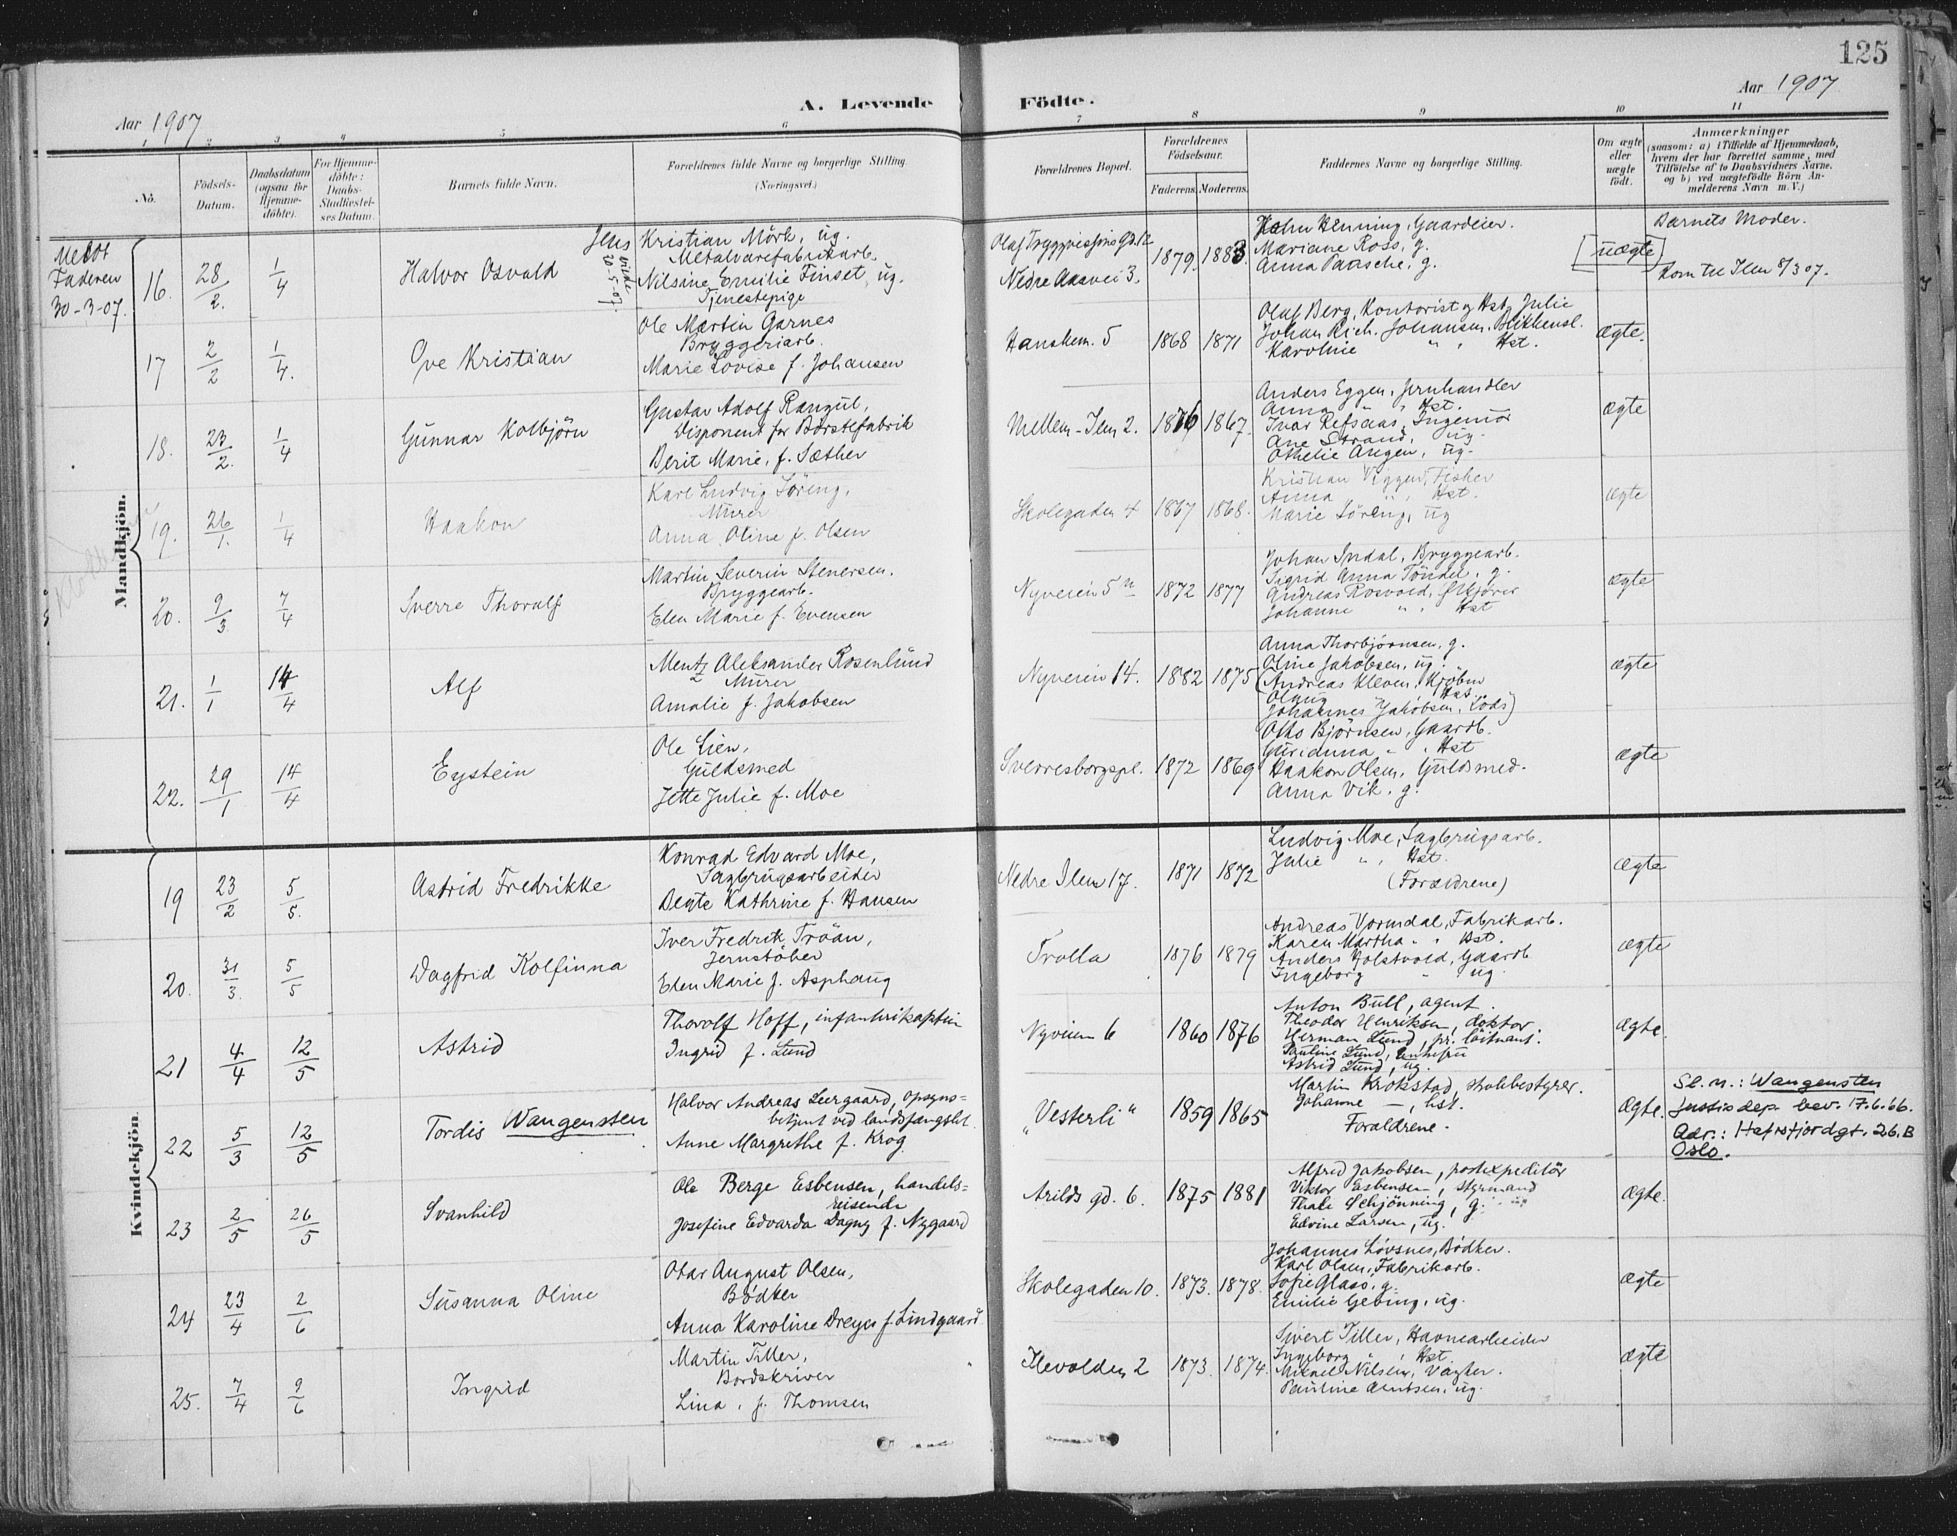 125
A. Levende Födte.
Aar 1907
Aar 1907
1 2 3 4 5 6 7 8 9 10 11
No.
Födsels-Datum.
Daabsdatum (ogsaa for Hjemmedöbte).
For Hjemmedöbte: Daabs-Stadfæstelses Datum.
Barnets fulde Navn.
Forældrenes fulde Navne og borgerlige Stilling. (Næringsvei.)
Forældrenes Bopæl.
Forældrenes Födselsaar.
Faderens. Moderens.
Faddernes Navne og borgerlige Stilling.
Om ægte eller uægte födt.
Anmærkninger
(saasom: a) i Tilfælde af Hjemmedaab, hvem der har forrettet samme, med Tilföielse af to Daabsvidners Navne. og b) ved uægtefödte Börn Anmelderens Navn m. V.)
Mandkjön.
Faderen
30-3-07.
16. 28/2. 1/4 Halvor Osvald
Jens Kristian Mörk, ug.
Metalvarefabrikarb.
Nilsine Emilie Finset, ug.
Tjenestepige
20-5-07.
Olaf Tryggvessöns Gd. 12
Nedre Aasvei 3.
1879. 1883
Henning, Gaardeier.
Mariane Ross, g.
Anna Paasche, g.
[uægte]
Barnets Moder.
Kom til Ilen 8/3 07.
17 2/2 1/4. Ove Kristian
Ole Martin Garnes
Bryggeriarb.
Marie Lovise f. Johansen
Hanskem. 5 1868 1871
Olaf Berg, Kontorist og Hst, Julie
Johan Rich. Johansen, Blikkensl.
Karoline " , Hst.
ægte.
18. 23/2. 1/4 Gunnar Kolbjörn
Gustav Adolf Rangul,
Disponent for Börstefabrik
Berit Marie, f. Sæther
Mellem-Ilen 2. 1876 1867.
Anders Eggen, Jernhandler
Anna " , Hst.
Ivar Refsaas, Ingeniör
Ane Strand, ug.
Othelie Angen, ug.
ægte
19. 26/1. 1/4 Haakon
Karl Ludvig Söreng,
Murer
Anna Oline f. Olsen
Skolegaden 4 1867 1868.
Kristian Viggen, Fisker
Anna " , Hst.
Marie Söreng, ug
ægte
20. 9/3 7/4 Sverre Thoralf
Martin Severin Stenersen.
Bryggearb.
Elen Marie f. Evensen
Nyveien 5 1872 1877
Johan Indal, Bryggearb.
Sigrid Anna Töndel, g.
Johanne " , Hst
ægte
21. 1/1 14/4 Alf
Mentz Aleksander Rosenlund
Murer
Amalie f. Jakobsen
Nyveien 14. 1882 1875
Anna Thorbjörnsen, g.
Oline Jakobsen, ug.
(Andreas Kleven, Kjöbm
Olaug Hst.
Johannes Jakobsen, Lods)
ægte
22. 29/1 14/4 Eystein
Ole Lien,
Guldsmed
Jette Julie f. Moe
Sverresborgspl. 1872 1869
Björnsen, Gaardb.
" , Hst
Haakon Olsen, Guldsmed.
Anna Vik, g.
ægte
Kvindekjön.
19 23/2 5/5. Astrid Fredrikke
Konrad Edvard Moe,
Sagbrugsarbeider
Kathrine f. Hansen
Nedre Ilen 17. 1871 1872
Ludvig Moe, Sagbrugsarb.
Julie " , Hst.
(Forældrene)
ægte
20. 31/3. 5/5 Dagfrid Kolfinna
Iver Fredrik Tröan,
Jernstöber
Elen Marie f. Asphaug
Trolla 1876 1879
Andreas Vormdal, Fabrikarb.
Karen Martha " , Hst.
Anders Golstvold, Gaardb
Ingeborg " ug.
ægte
21 4/4 12/5 Astrid
Thorolf Hoff, infanterikaptein
Ingrid f. Lund
Nyveien 6 1860 1876
Anton Bull, agent.
Theodor Henriksen, doktor.
Herman Lund, pr. löitnant.
Pauline Lund, enkefru
Astrid Lund, ug.
Ægte.
22 5/3 12/5 Tordis Wangensten
Halvor Andreas Leergaard, opsyns=
betjent ved landsfængslet
Anne Margrethe f. Krog.
"Vesterli" 1859 1865
Martin Krokstad, skolebestyrer.
Johanne — , hst.
Forældrene.
Ægte.
Sl.n.: Wangensten
Justisdep bev. 17.6.66.
Adr.: Hafrsfjordgt. 26.B
Oslo.
23 2/5 26/5 Svanhild
Ole Berge Esbensen, handels=
reisende
Josefine Edvarda Dagny f. Nygaard
Arilds gd. 6. 1875 1881
Alfred Jakobsen, postexpeditör
Viktor Esbensen, styrmand
Thale Schjönning, g.
Edvine Larsen, ug.
Ægte.
24 23/4 2/6 Susanna Oline
Otar August Olsen,
Bödker
Anna Karoline Dreyer f. Lindgaard
Skolegaden 10. 1873. 1878.
Johannes Lövsnes, Bödker.
Karl Olsen, Fabrikarb.
Sofie Glasö, g.
Emilie Gebing, ug.
Ægte
25. 7/4 9/6 Ingrid
Martin Tiller,
Bordskriver
Lina, f. Thomsen
Ilevolden 2 1873. 1874.
Sivert Tiller, Havnearbeider
Ingeborg " , Hst
Mikael Nilsen, Vægter.
Pauline Arntsen, ug.
ægte